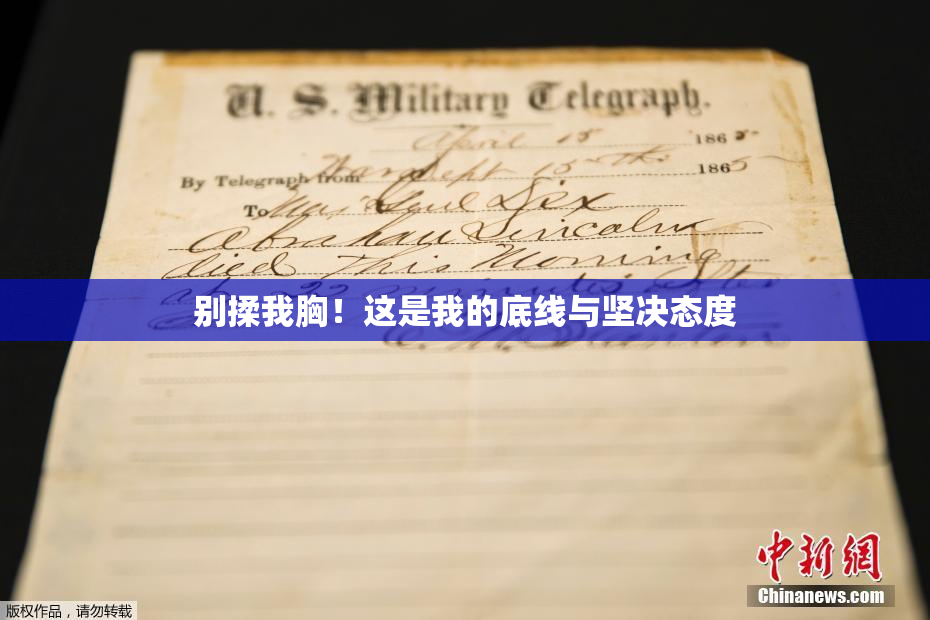 U. S. Military Telegraph.
April 15 1865
By Telegraph from War Dept 15th 1865
To Maj Genl Dix
Abraham Lincoln
died This Morning
at 22 minutes after
别揉我胸！这是我的底线与坚决态度
E. M. Stanton
中新网
Chinanews.com
版权作品，请勿转载